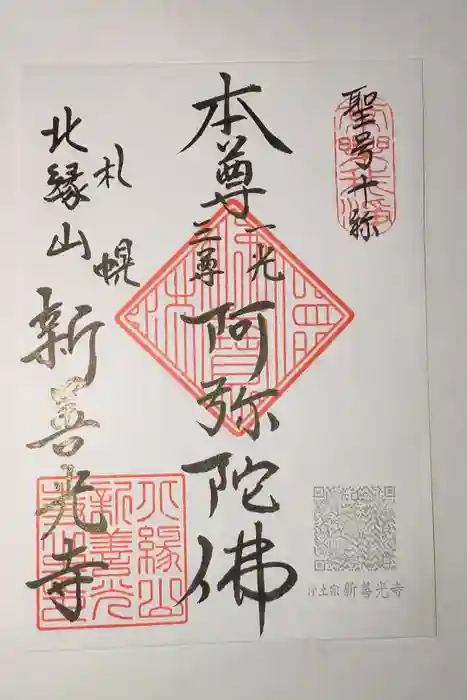 聖号十称
本尊
一光
三尊
阿弥陀佛
札幌
北縁山
新善光寺
北縁山
新善光
寺
浄土宗 新善光寺